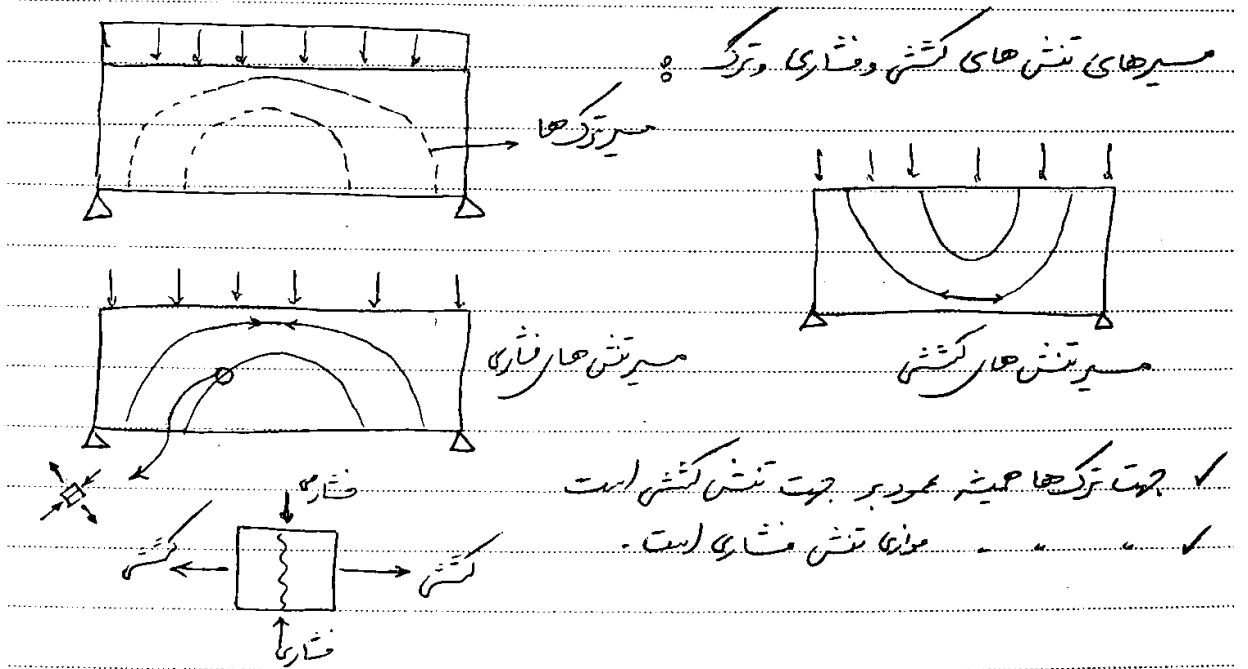 مسیرهای تنش های کششی و فشاری و ترک :
مسیر ترک ها
مسیر تنش های کششی
مسیر تنش های فشاری
✓ جهت ترک ها همیشه عمود بر جهت تنش کششی است
✓ " " " موازی تنش فشاری است .
فشاری
کششی
کششی
فشاری